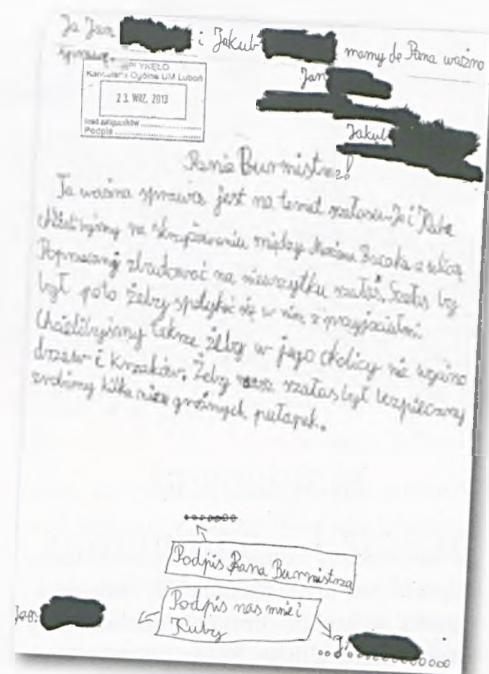 Ja Jan i Jakub mamy do Pana ważną
sprawę.
Kancelaria Ogólna UM Luboń
23. WRZ. 2013
Ilość załączników
Podpis
Jan
Jakub
Panie Burmistrzu!
Ta ważna sprawa jest na temat szałasu. Ja i Kuba
chcielibyśmy na skrzyżowaniu między a ulicą
Poprzeczną zbudować na nieużytku szałas. Szałas by
był poto żeby spotykać się w nim z przyjaciółmi.
Chcielibyśmy także żeby w jego okolicy nie wycinano
drzew i krzaków. Żeby szałas był bezpieczny
zrobimy kilka groźnych pułapek.
Podpis Pana Burmistrza
Podpis nas mnie i
Kuby